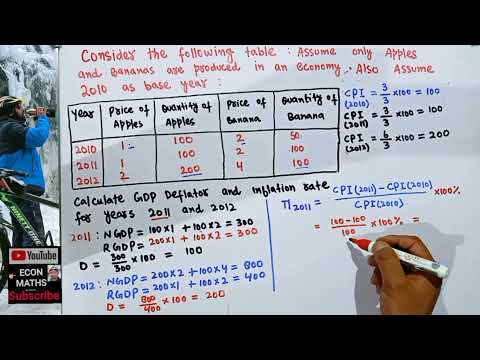 Consider the following table : Assume only Apples
and Bananas are produced in an economy. Also Assume
2010 as base year :
Year Price of Apples Quantity of Apples Price of Banana Quantity of Banana
2010 1 100 2 50
2011 1 100 2 100
2012 2 200 4 100
CPI (2010) = 3/3 ×100 = 100
CPI (2011) = 3/3 ×100 = 100
CPI (2012) = 6/3 ×100 = 200
Calculate GDP Deflator and inflation rate
for years 2011 and 2012
2011 : NGDP = 100×1 + 100×2 = 300
RGDP = 200×1 + 100×2 = 300
D = 300/300 ×100 = 100
2012 : NGDP = 200×2 + 100×4 = 800
RGDP = 200×1 + 100×2 = 400
D = 800/400 ×100 = 200
Π2011 = CPI(2011) - CPI(2010) / CPI(2010) ×100%
= 100-100 / 100 ×100% =
YouTube
ECON
MATHS
Subscribe